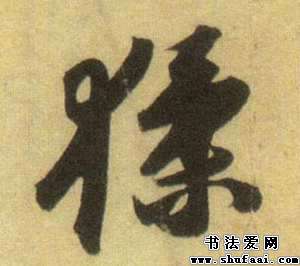 猱
书法爱网
www.shufaai.com